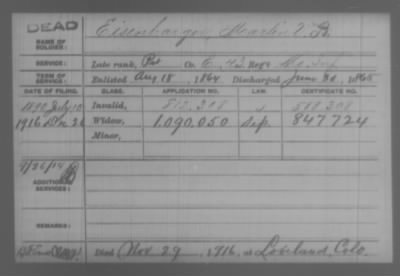 DEAD
NAME OF SOLDIER: Eisenbarger, Martin V. B.
SERVICE: Late rank, Pvt Co. E, 42 Reg't Mo. Inf.
TERM OF SERVICE: Enlisted Aug 18, 1864 Discharged June 30, 1865
DATE OF FILING. CLASS. APPLICATION NO. LAW. CERTIFICATE NO.
1890 July 10 Invalid, 512,208
1916 Dec 26 Widow, 1.090.050 847.724
Minor,
9/26/14
ADDITIONAL SERVICES:
REMARKS:
Died Nov 29, 1916, at Loveland, Colo.